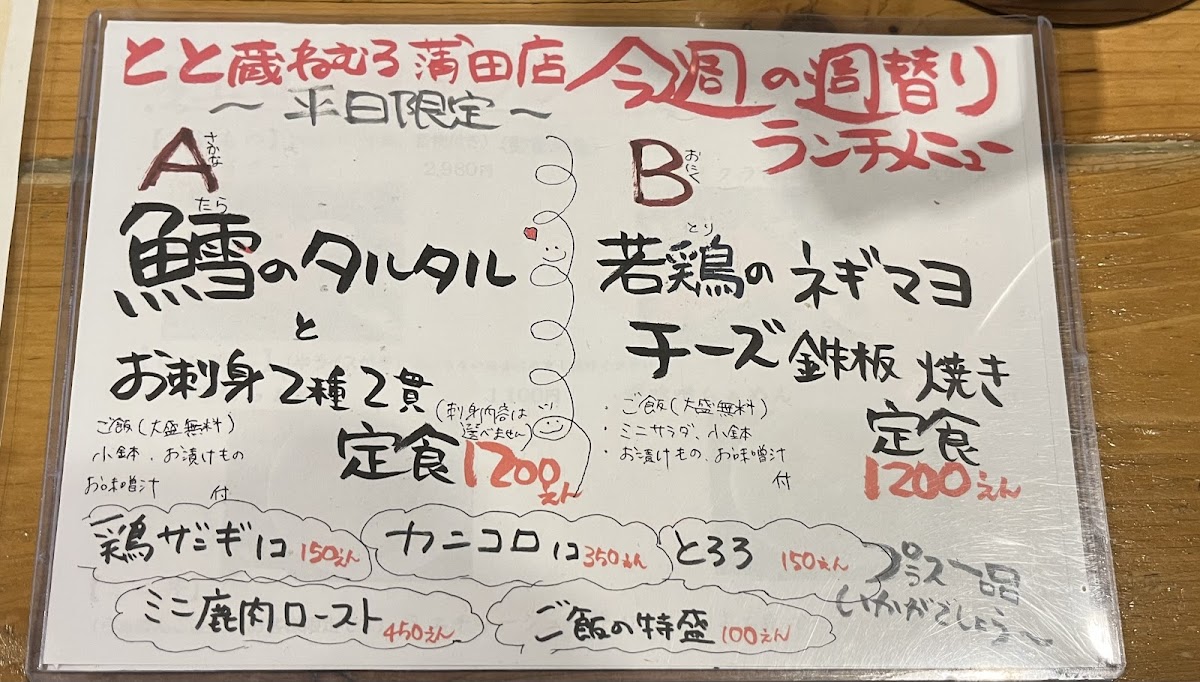 とと蔵ねむろ蒲田店 今週の週替り
～平日限定～
ランチメニュー
A さかな
鱈のタルタル
たら
と
お刺身2種2貫
(刺身内容は
選べません)
定食 1200えん
ご飯(大盛無料)
小鉢、お漬けもの
お味噌汁 付
B おにく
若鶏のネギマヨ
とり
チーズ鉄板焼き
定食
1200えん
・ご飯(大盛無料)
・ミニサラダ、小鉢
・お漬けもの、お味噌汁
付
鶏ザンギ1コ 150えん
カニコロ1コ 350えん
とろろ 150えん
ミニ鹿肉ロースト 450えん
ご飯の特盛 100えん
プラス一品
いかがでしょう～
2,980円